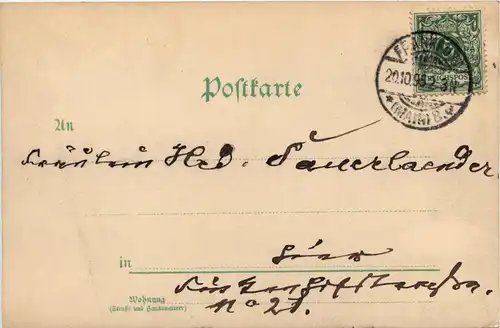 FRANKFURT
20.10.98. 2-3N.
* (MAIN) 8.
Postkarte
An
Fräulein Hed. Sauerlaender
in
hier
No 21.
Wohnung
(Straße und Hausnummer)